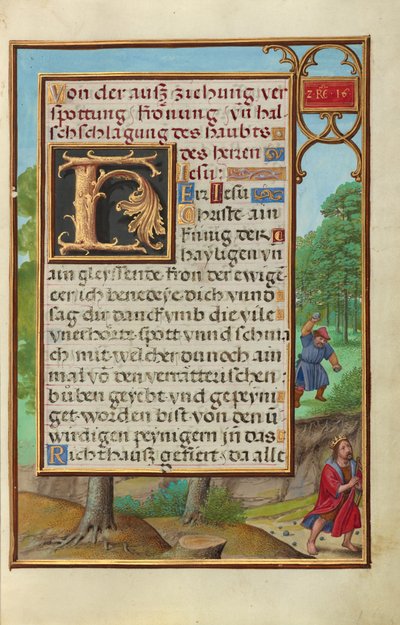 2·RE·16
Von der aufz ziehung ver
spottung krönung vn̄ hal
schschlagung des haubts
des herren
iesu:
HErr Iesu
Christe ain
künig der
hayligen vn̄
ain gleyssende kron der ewigē
eer ich benedeye dich vnnd
sag dir danck vmb die vile
vnerhörte spott vnnd schma
ch mit welcher dunoch ain
mal vō den verrätterischen
büben geyebt vnd gepeyni
get worden bist von den ū
wirdigen peynigern jn das
Richthauß gefiert da alle